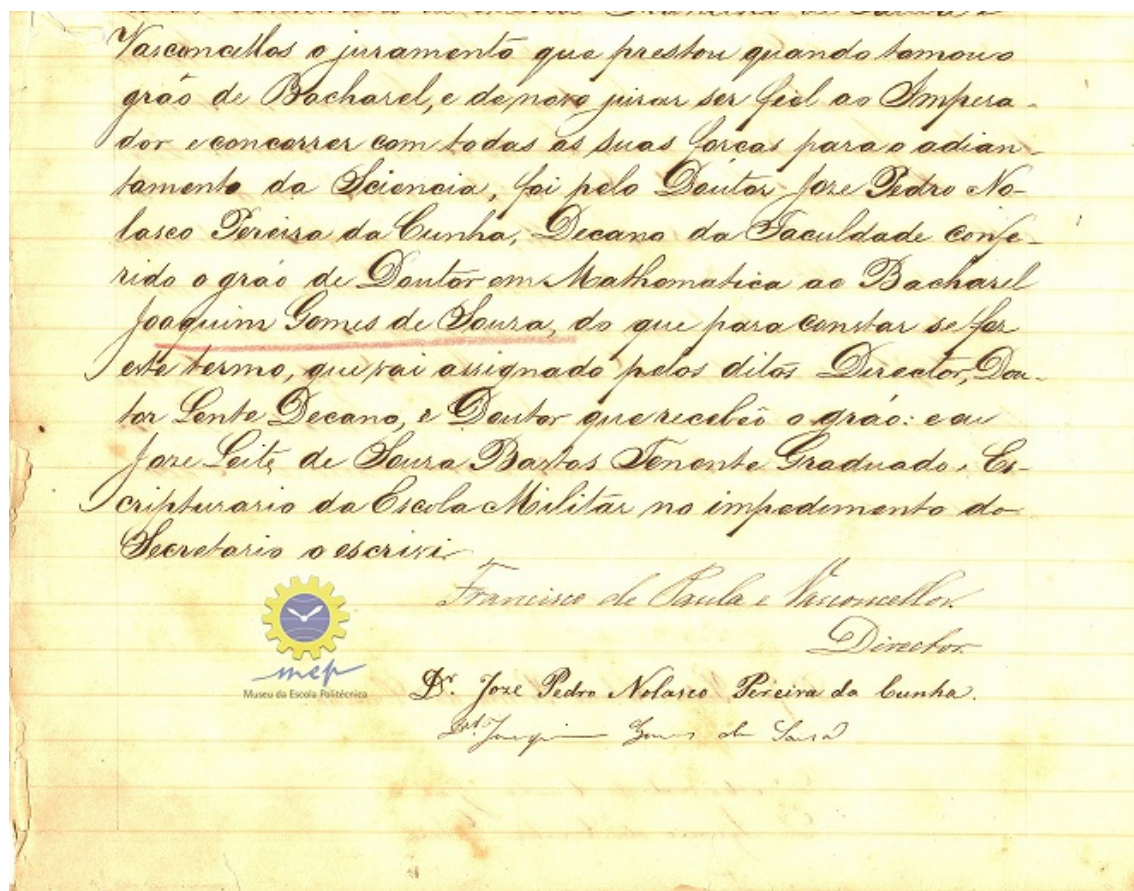 Francisco de Paula e
Vasconcellos o juramento que prestou quando tomou o
gráo de Bacharel, e de novo jurar ser fiel ao Impera-
dor e concorrer com todas as suas forcas para o adian-
tamento da Sciencia, foi pelo Doutor Joze Pedro No-
lasco Pereira da Cunha, Decano da Faculdade confe-
rido o gráo de Doutor em Mathematica ao Bacharel
Joaquim Gomes de Souza, do que para constar se fez
este termo, que vai assignado pelos ditos Director, Dou-
tor Lente Decano, e Doutor que recebêo o gráo: e eu
Joze Leite de Souza Bastos Tenente Graduado, Es-
cripturario da Escola Militar no impedimento do
Secretario o escrivi
Francisco de Paula e Vasconcellos.
Director.
mep
Museu da Escola Politécnica
Dr. Joze Pedro Nolasco Pereira da Cunha.
Dr. Joaquim Gomes de Souza